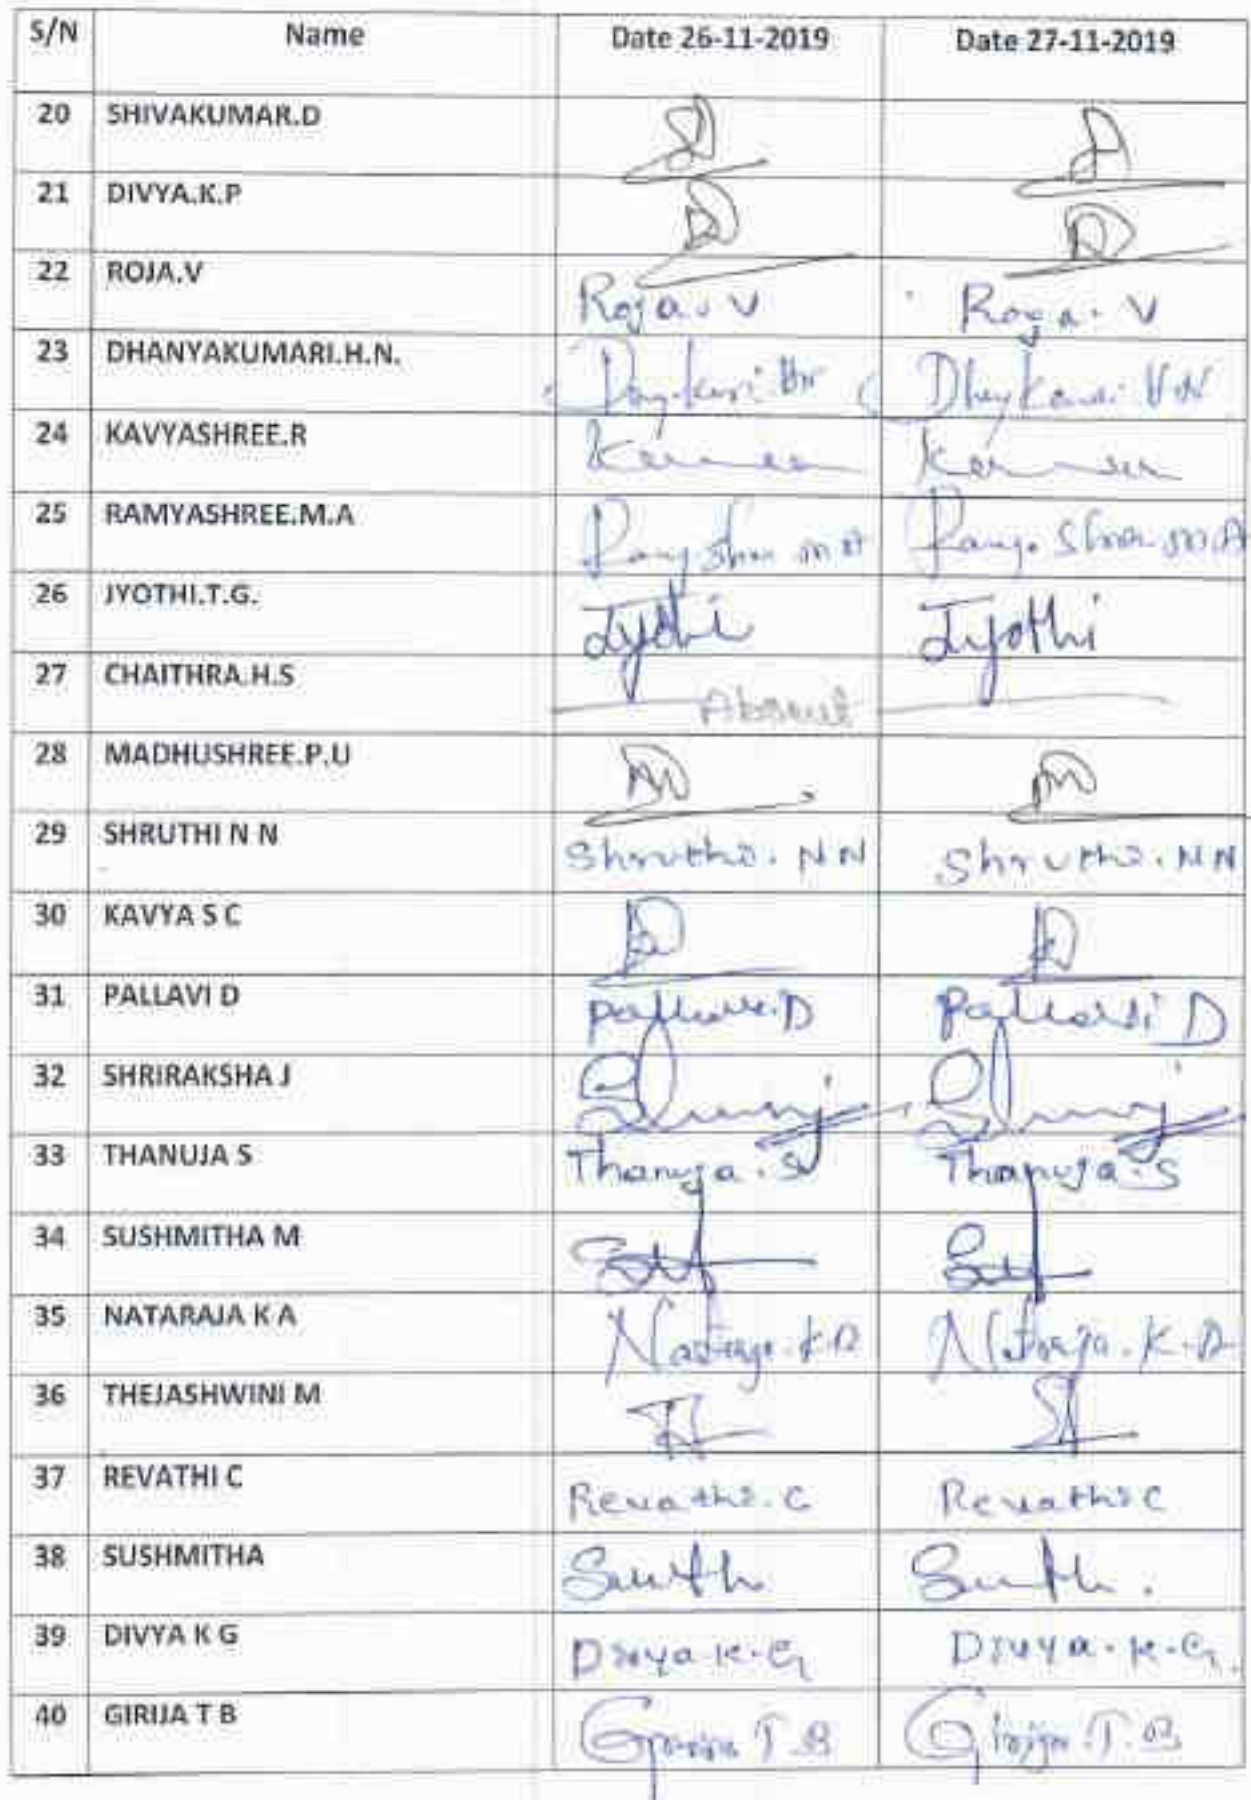 S/N Name Date 26-11-2019 Date 27-11-2019
20 SHIVAKUMAR.D
21 DIVYA.K.P
22 ROJA.V Roja.V Roja.V
23 DHANYAKUMARI.H.N.
24 KAVYASHREE.R
25 RAMYASHREE.M.A
26 JYOTHI.T.G. Jyothi Jyothi
27 CHAITHRA.H.S Absent
28 MADHUSHREE.P.U
29 SHRUTHI N N Shruthi.NN Shruthi.NN
30 KAVYA S C
31 PALLAVI D Pallavi.D Pallavi D
32 SHRIRAKSHA J
33 THANUJA S Thanuja.S Thanuja.S
34 SUSHMITHA M
35 NATARAJA K A
36 THEJASHWINI M
37 REVATHI C Revathi.C Revathi C
38 SUSHMITHA
39 DIVYA K G Divya.K.G Divya.K.G.
40 GIRIJA T B Girija T.B Girija.T.B